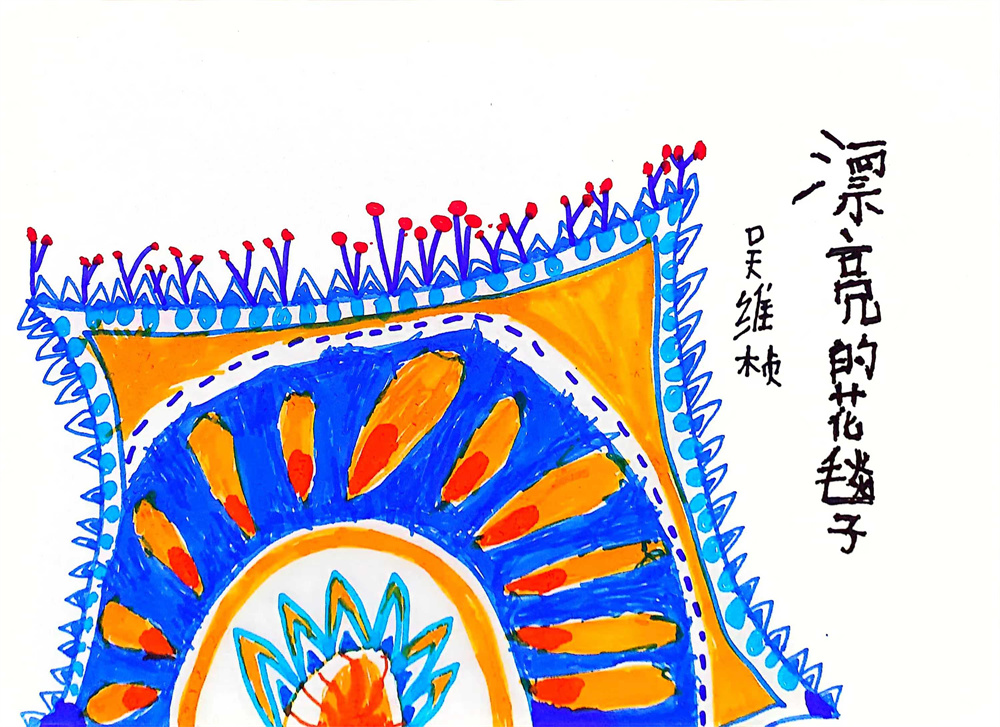 漂亮的花毯子
吴维桢